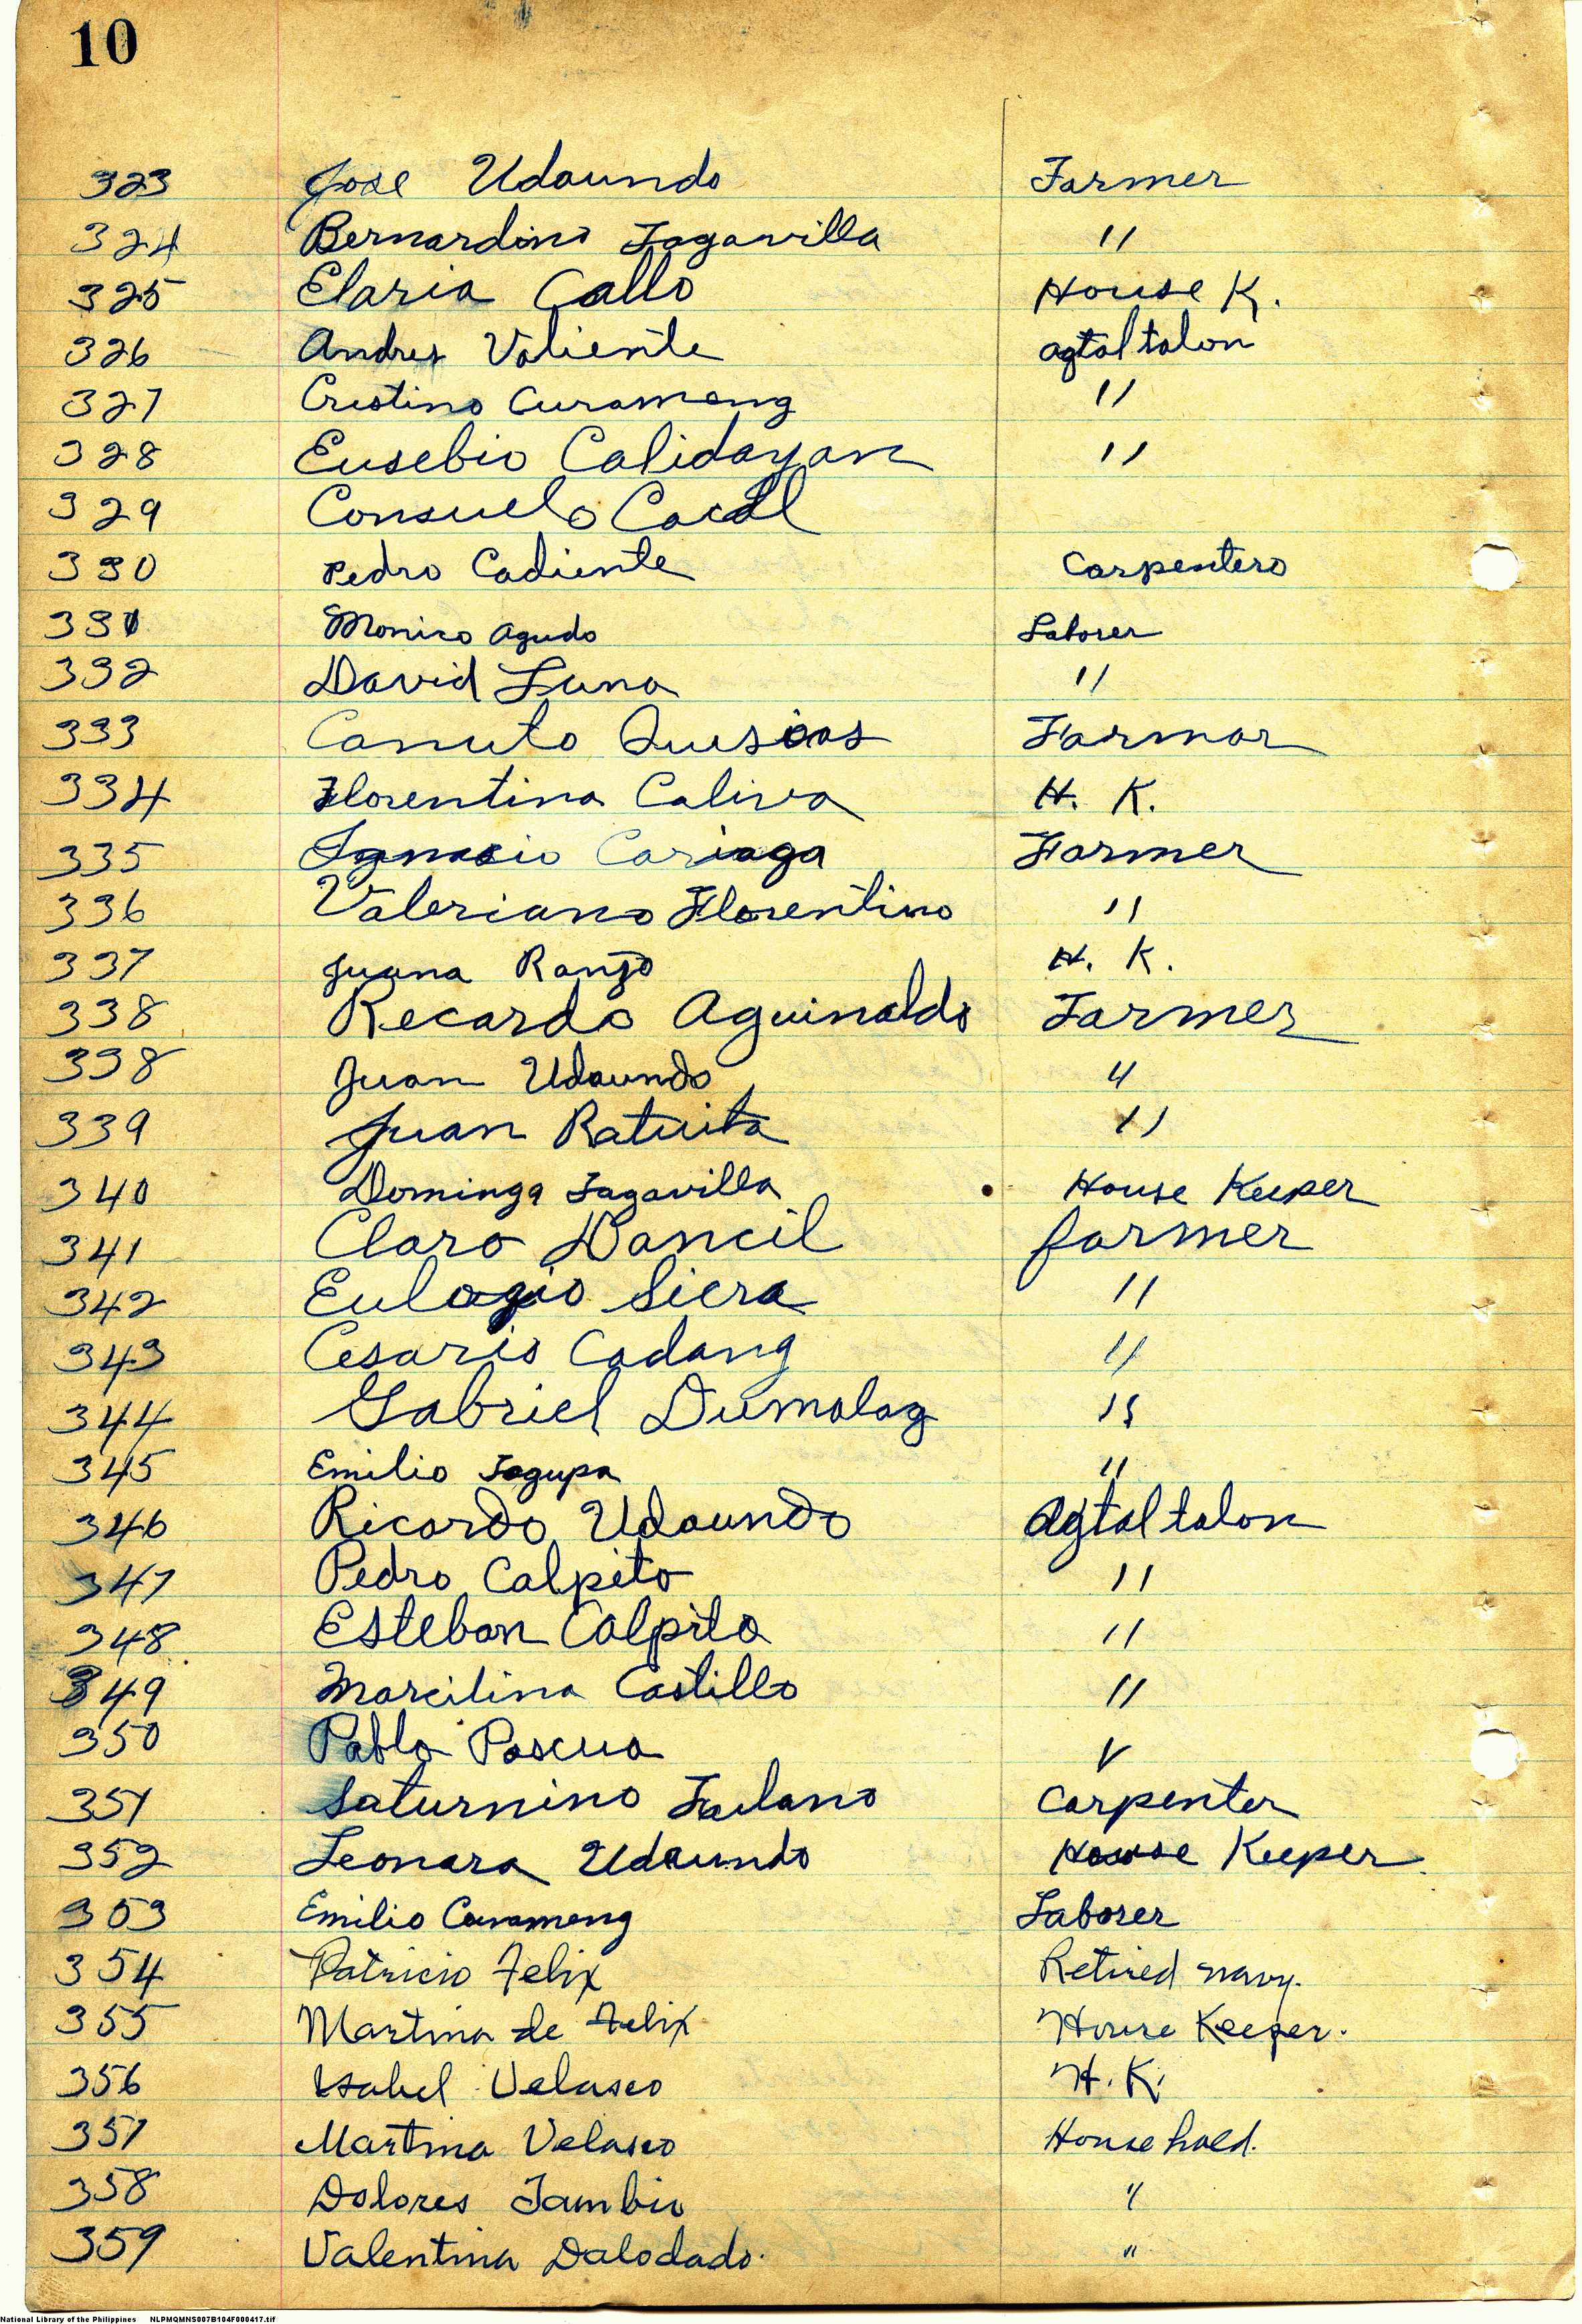 10
323 Jose Udaundo Farmer
324 Bernardino Tagavilla "
325 Elaria Callo House K.
326 Andres Valiente agtaltalon
327 Cristino Curameng "
328 Eusebio Calidayan "
329 Consuelo Cacal
330 Pedro Cadiente Carpentero
331 Monico Agudo Laborer
332 David Luna "
333 Canuto Farmar
334 Florentina Caliva H. K.
335 Ignasio Cariaga Farmer
336 Valeriano Florentino "
337 Juana Ranjo H. K.
338 Recardo Aguinaldo Farmer
338 Juan Udaundo "
339 Juan Ratuita "
340 Dominga Tagavilla House Keeper
341 Claro Dancil farmer
342 Eulogio Siera "
343 Cesario Cadang "
344 Gabriel Dumalag "
345 Emilio Tagupa "
346 Ricardo Udaundo Agtaltalon
347 Pedro Calpito "
348 Esteban Calpito "
349 Marcilina Castillo "
350 Pablo Pascua "
351 Saturnino Carpenter
352 Leonara Udaundo House Keeper
353 Emilio Curameng Laborer
354 Patricio Felix Retired navy.
355 Martina de Felix House Keeper.
356 Isabel Velasco H. K.
357 Martina Velasco Household.
358 Dolores Tambio "
359 Valentina Dalodado. "
National Library of the Philippines NLPMQMNS007B104F000417.tif